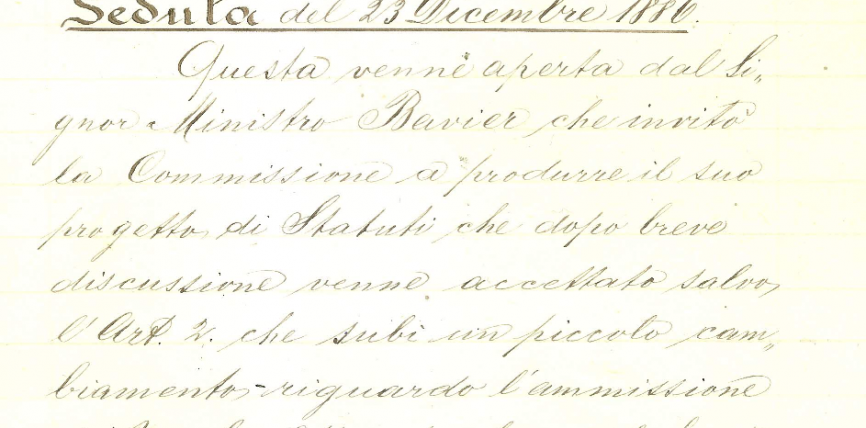 Seduta del 23 Decembre 1886.
Questa venne aperta dal Si„
gnor Ministro Bavier che invitò
la Commissione a produrre il suo
progetto di Statuti che dopo breve
discussione venne accettato salvo
l'Art. 2. che subi un piccolo cam„
biamento riguardo l'ammissione